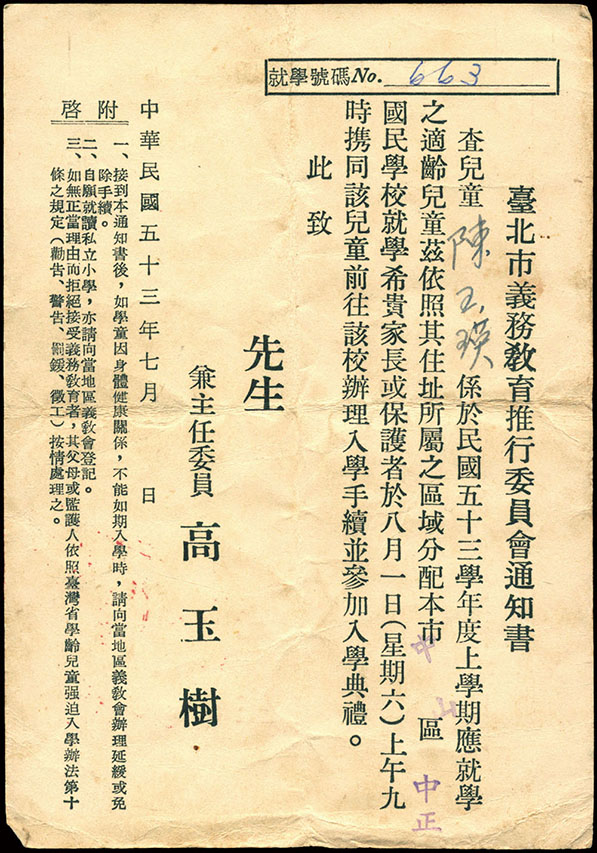 就學號碼No. 663
臺北市義務教育推行委員會通知書
查兒童 陳玉瑛 係於民國五十三學年度上學期應就學
之適齡兒童茲依照其住址所屬之區域分配本市中山區中正
國民學校就學希貴家長或保護者於八月一日(星期六)上午九
時携同該兒童前往該校辦理入學手續並參加入學典禮。
此致
先生
兼主任委員 高玉樹
中華民國五十三年七月 日
附啓
一、接到本通知書後,如學童因身體健康關係,不能如期入學時,請向當地區義教會辦理延緩或免
除手續。
二、自願就讀私立小學,亦請向當地區義教會登記。
三、如無正當理由而拒絕接受義務教育者,其父母或監護人依照臺灣省學齡兒童强迫入學辦法第十
條之規定(勸告、警告、罰鍰、徵工)按情處理之。